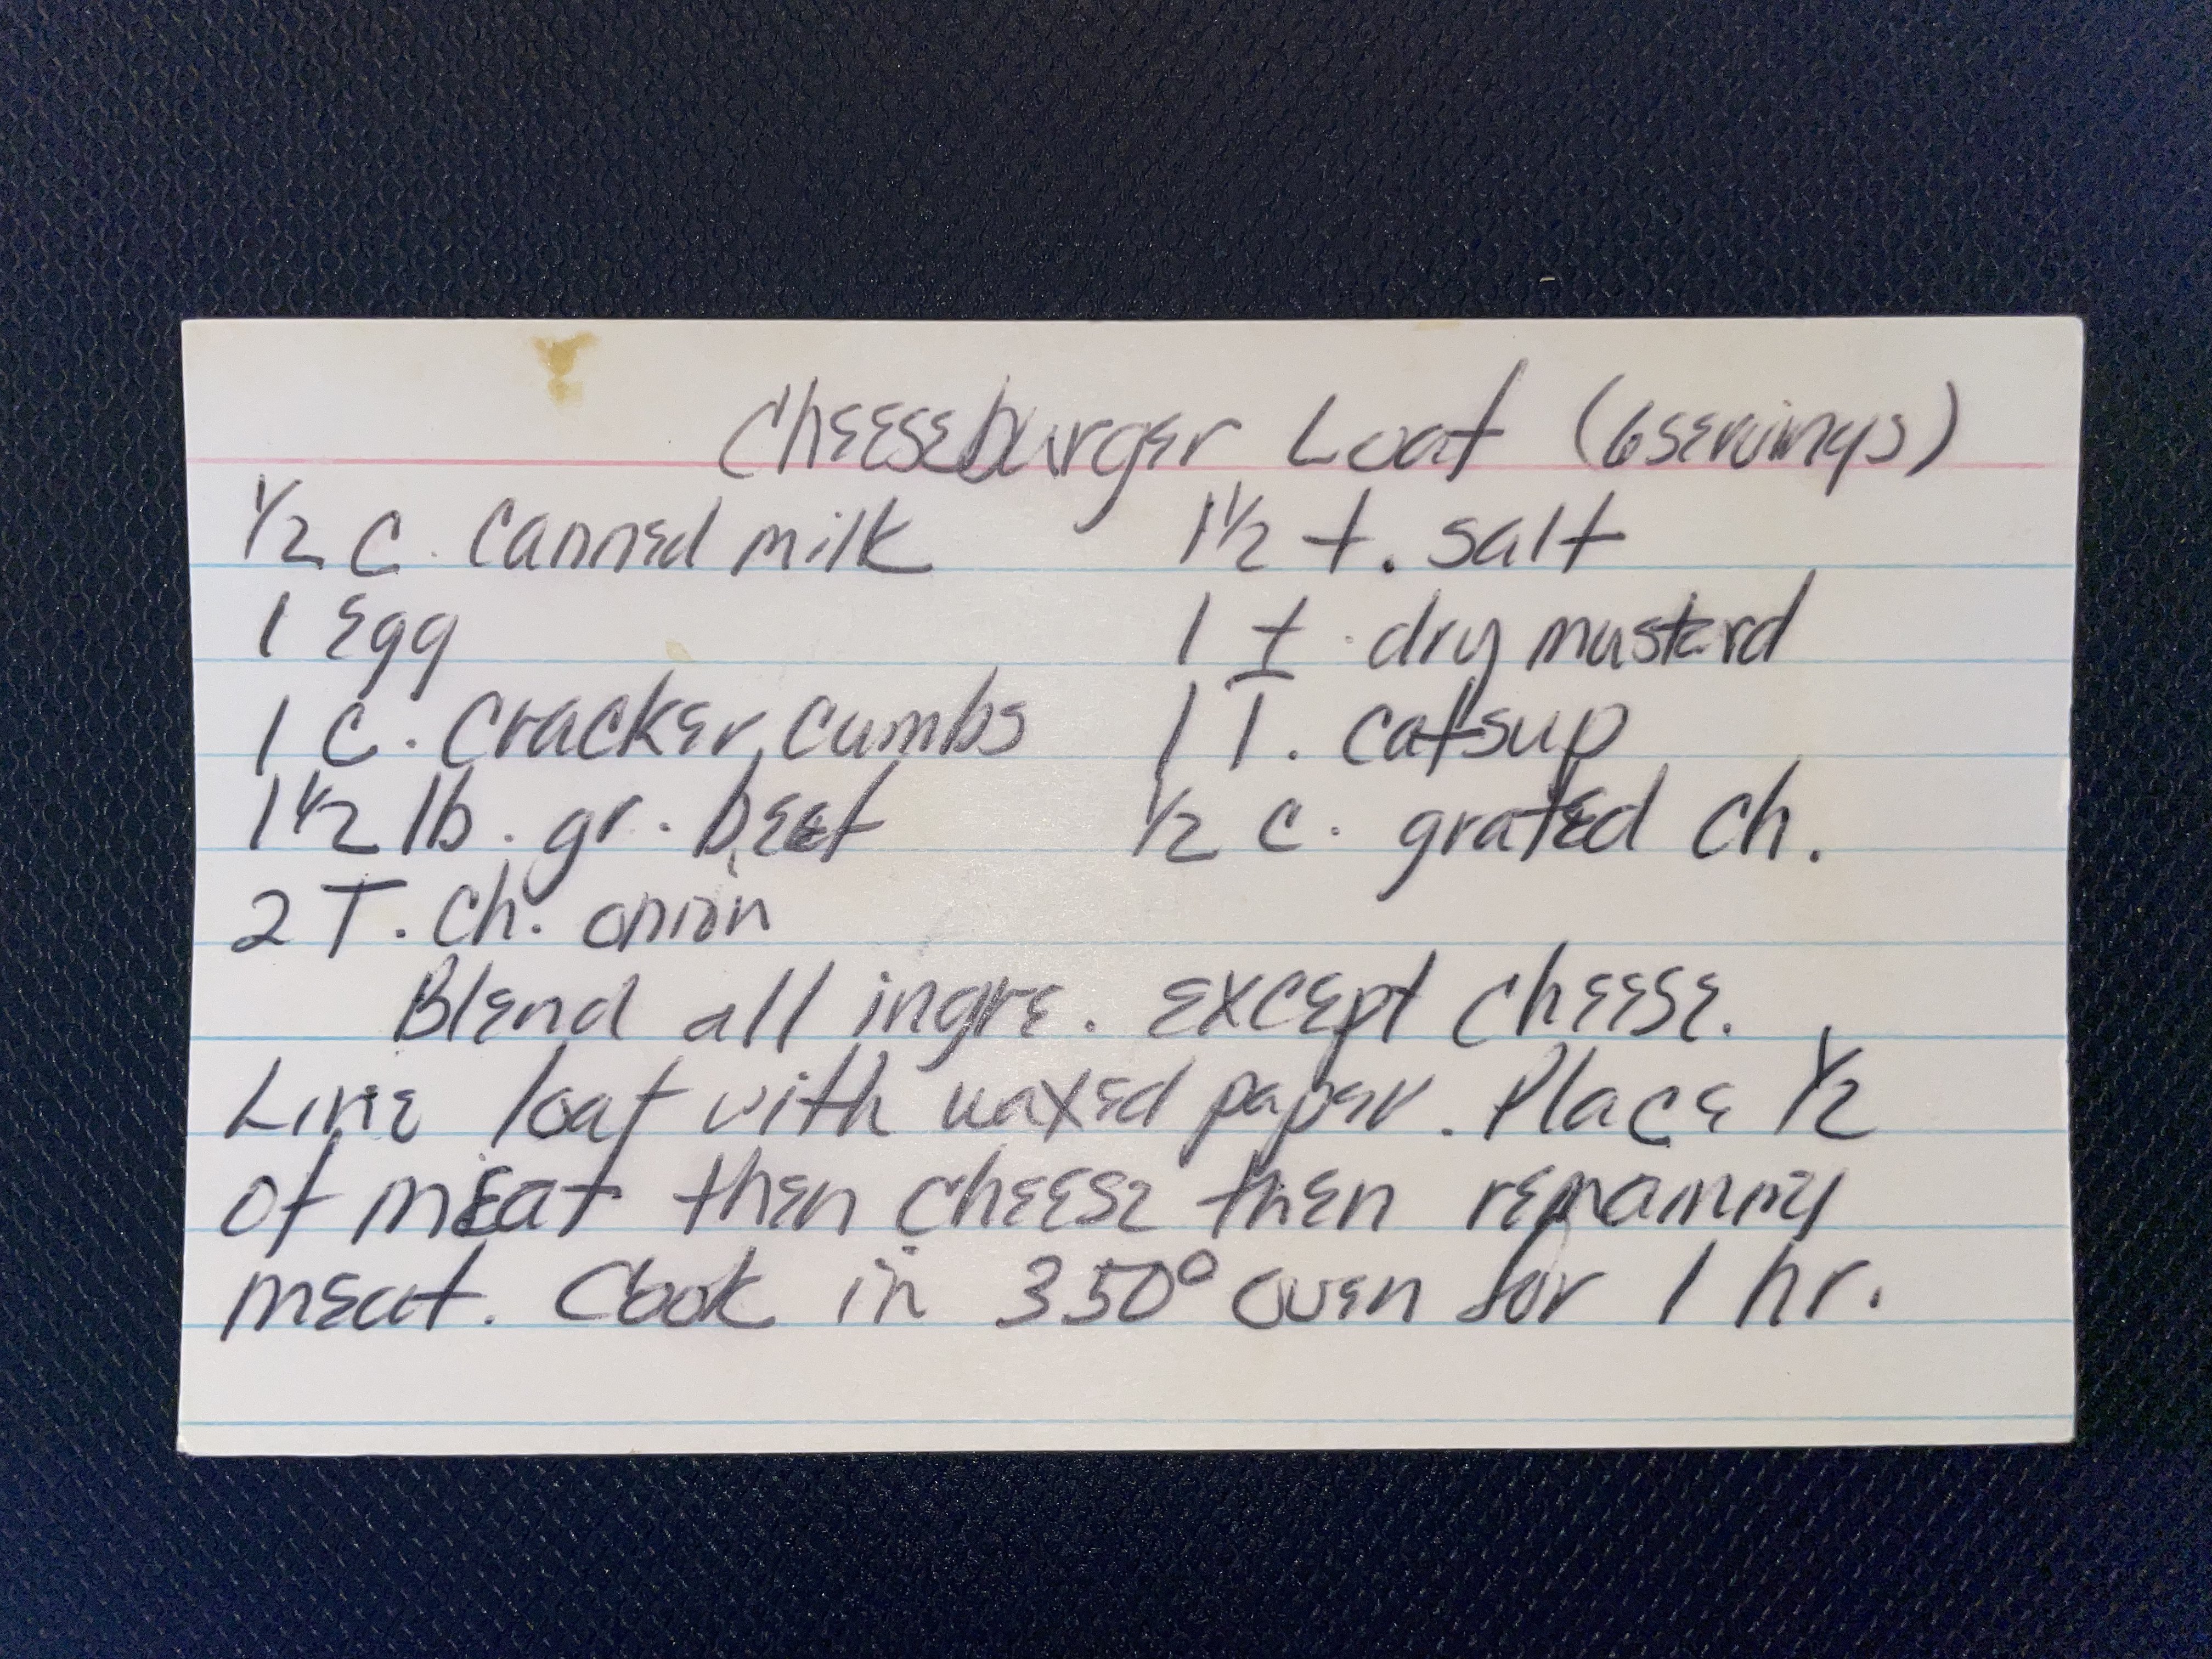 Cheeseburger Loaf (6 servings)
1/2 C. canned milk
1 egg
1 C. cracker cumbs
1 1/2 lb. gr. beef
2 T. ch. onion
1 1/2 t. salt
1 t. dry mustard
1 T. catsup
1/2 c. grated ch.
Blend all ingre. except cheese.
Line loaf with waxed paper. Place 1/2
of meat then cheese then remaining
meat. Cook in 350° oven for 1 hr.